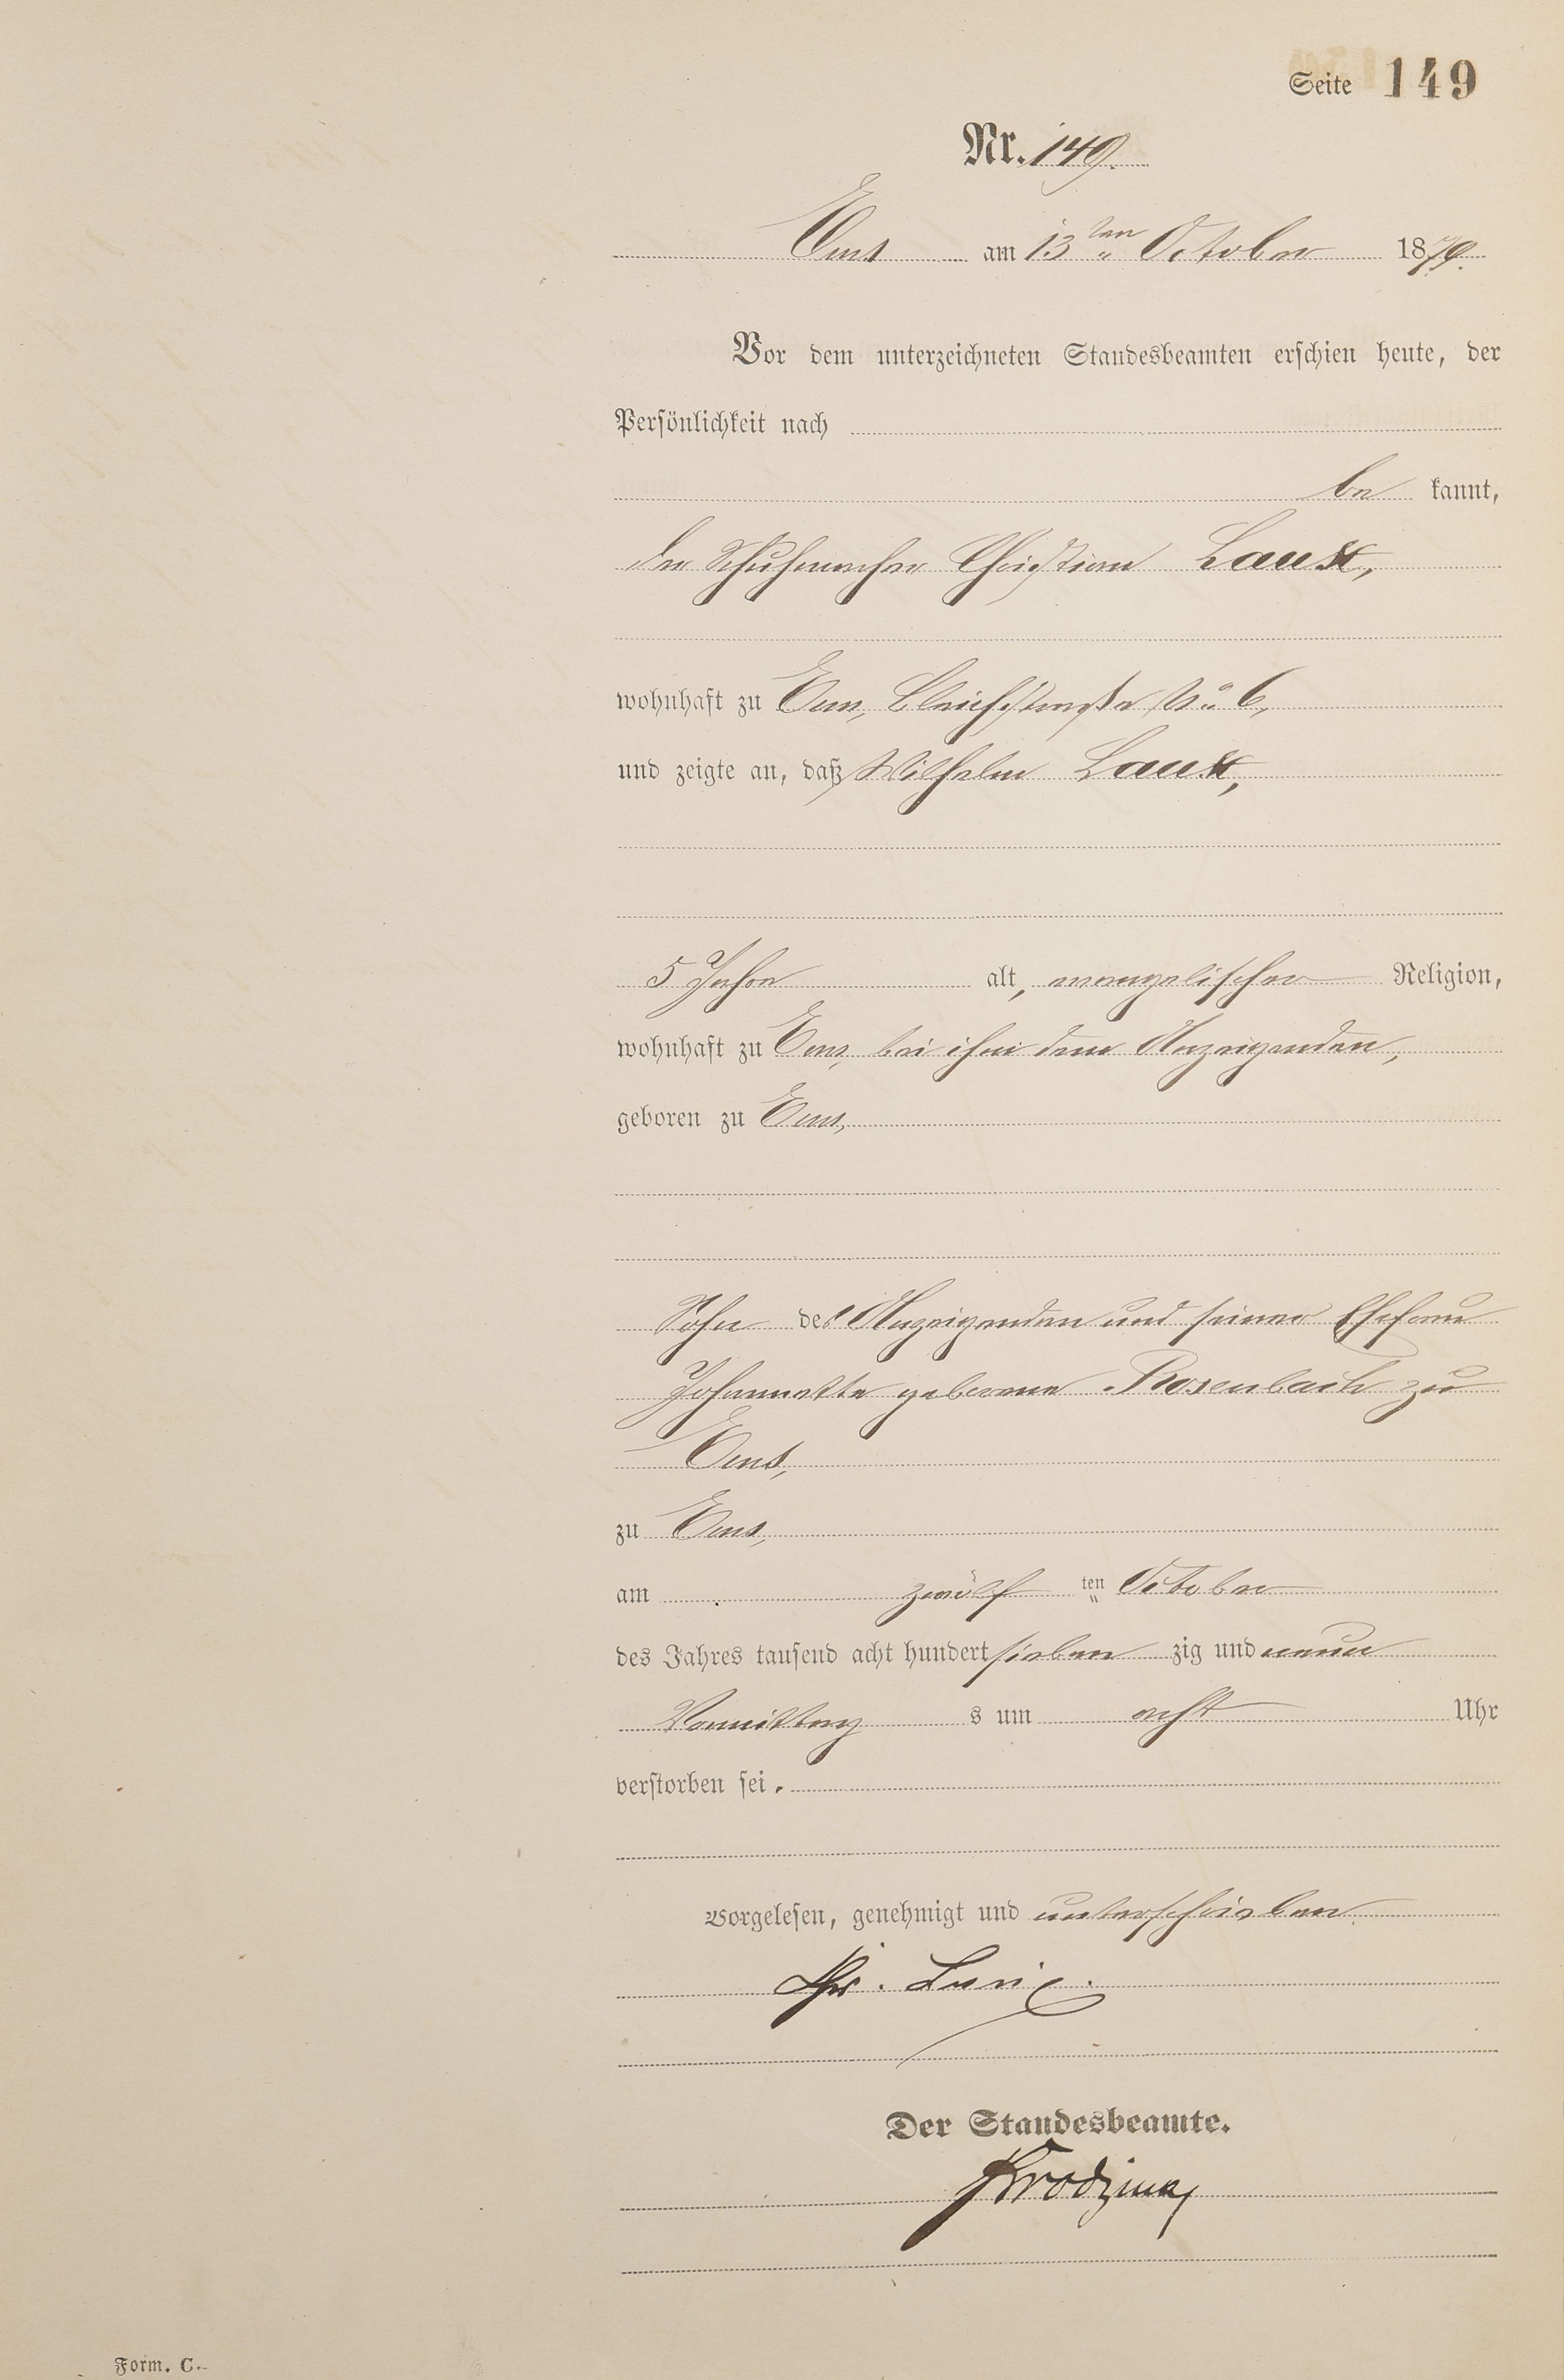 Seite 149
Nr. 149.
Ems am 13ten October 1879.
Vor dem unterzeichneten Standesbeamten erschien heute, der
Persönlichkeit nach
be kannt,
der Schuhmacher Christian Laux,
wohnhaft zu Ems, Bleichstraße No 6,
und zeigte an, daß Wilhelm Laux,
5 Jahre alt, evangelischer Religion,
wohnhaft zu Ems, bei ihm dem Anzeigenden,
geboren zu Ems,
Sohn des Anzeigenden und seiner Ehefrau
Johannette geborene Rosenbach zu
Ems,
zu Ems,
am zwölf ten October
des Jahres tausend acht hundert sieben zig und neun
Vormittag s um acht Uhr
verstorben sei.
Vorgelesen, genehmigt und unterschrieben
Chr. Laux.
Der Standesbeamte.
Form. C.